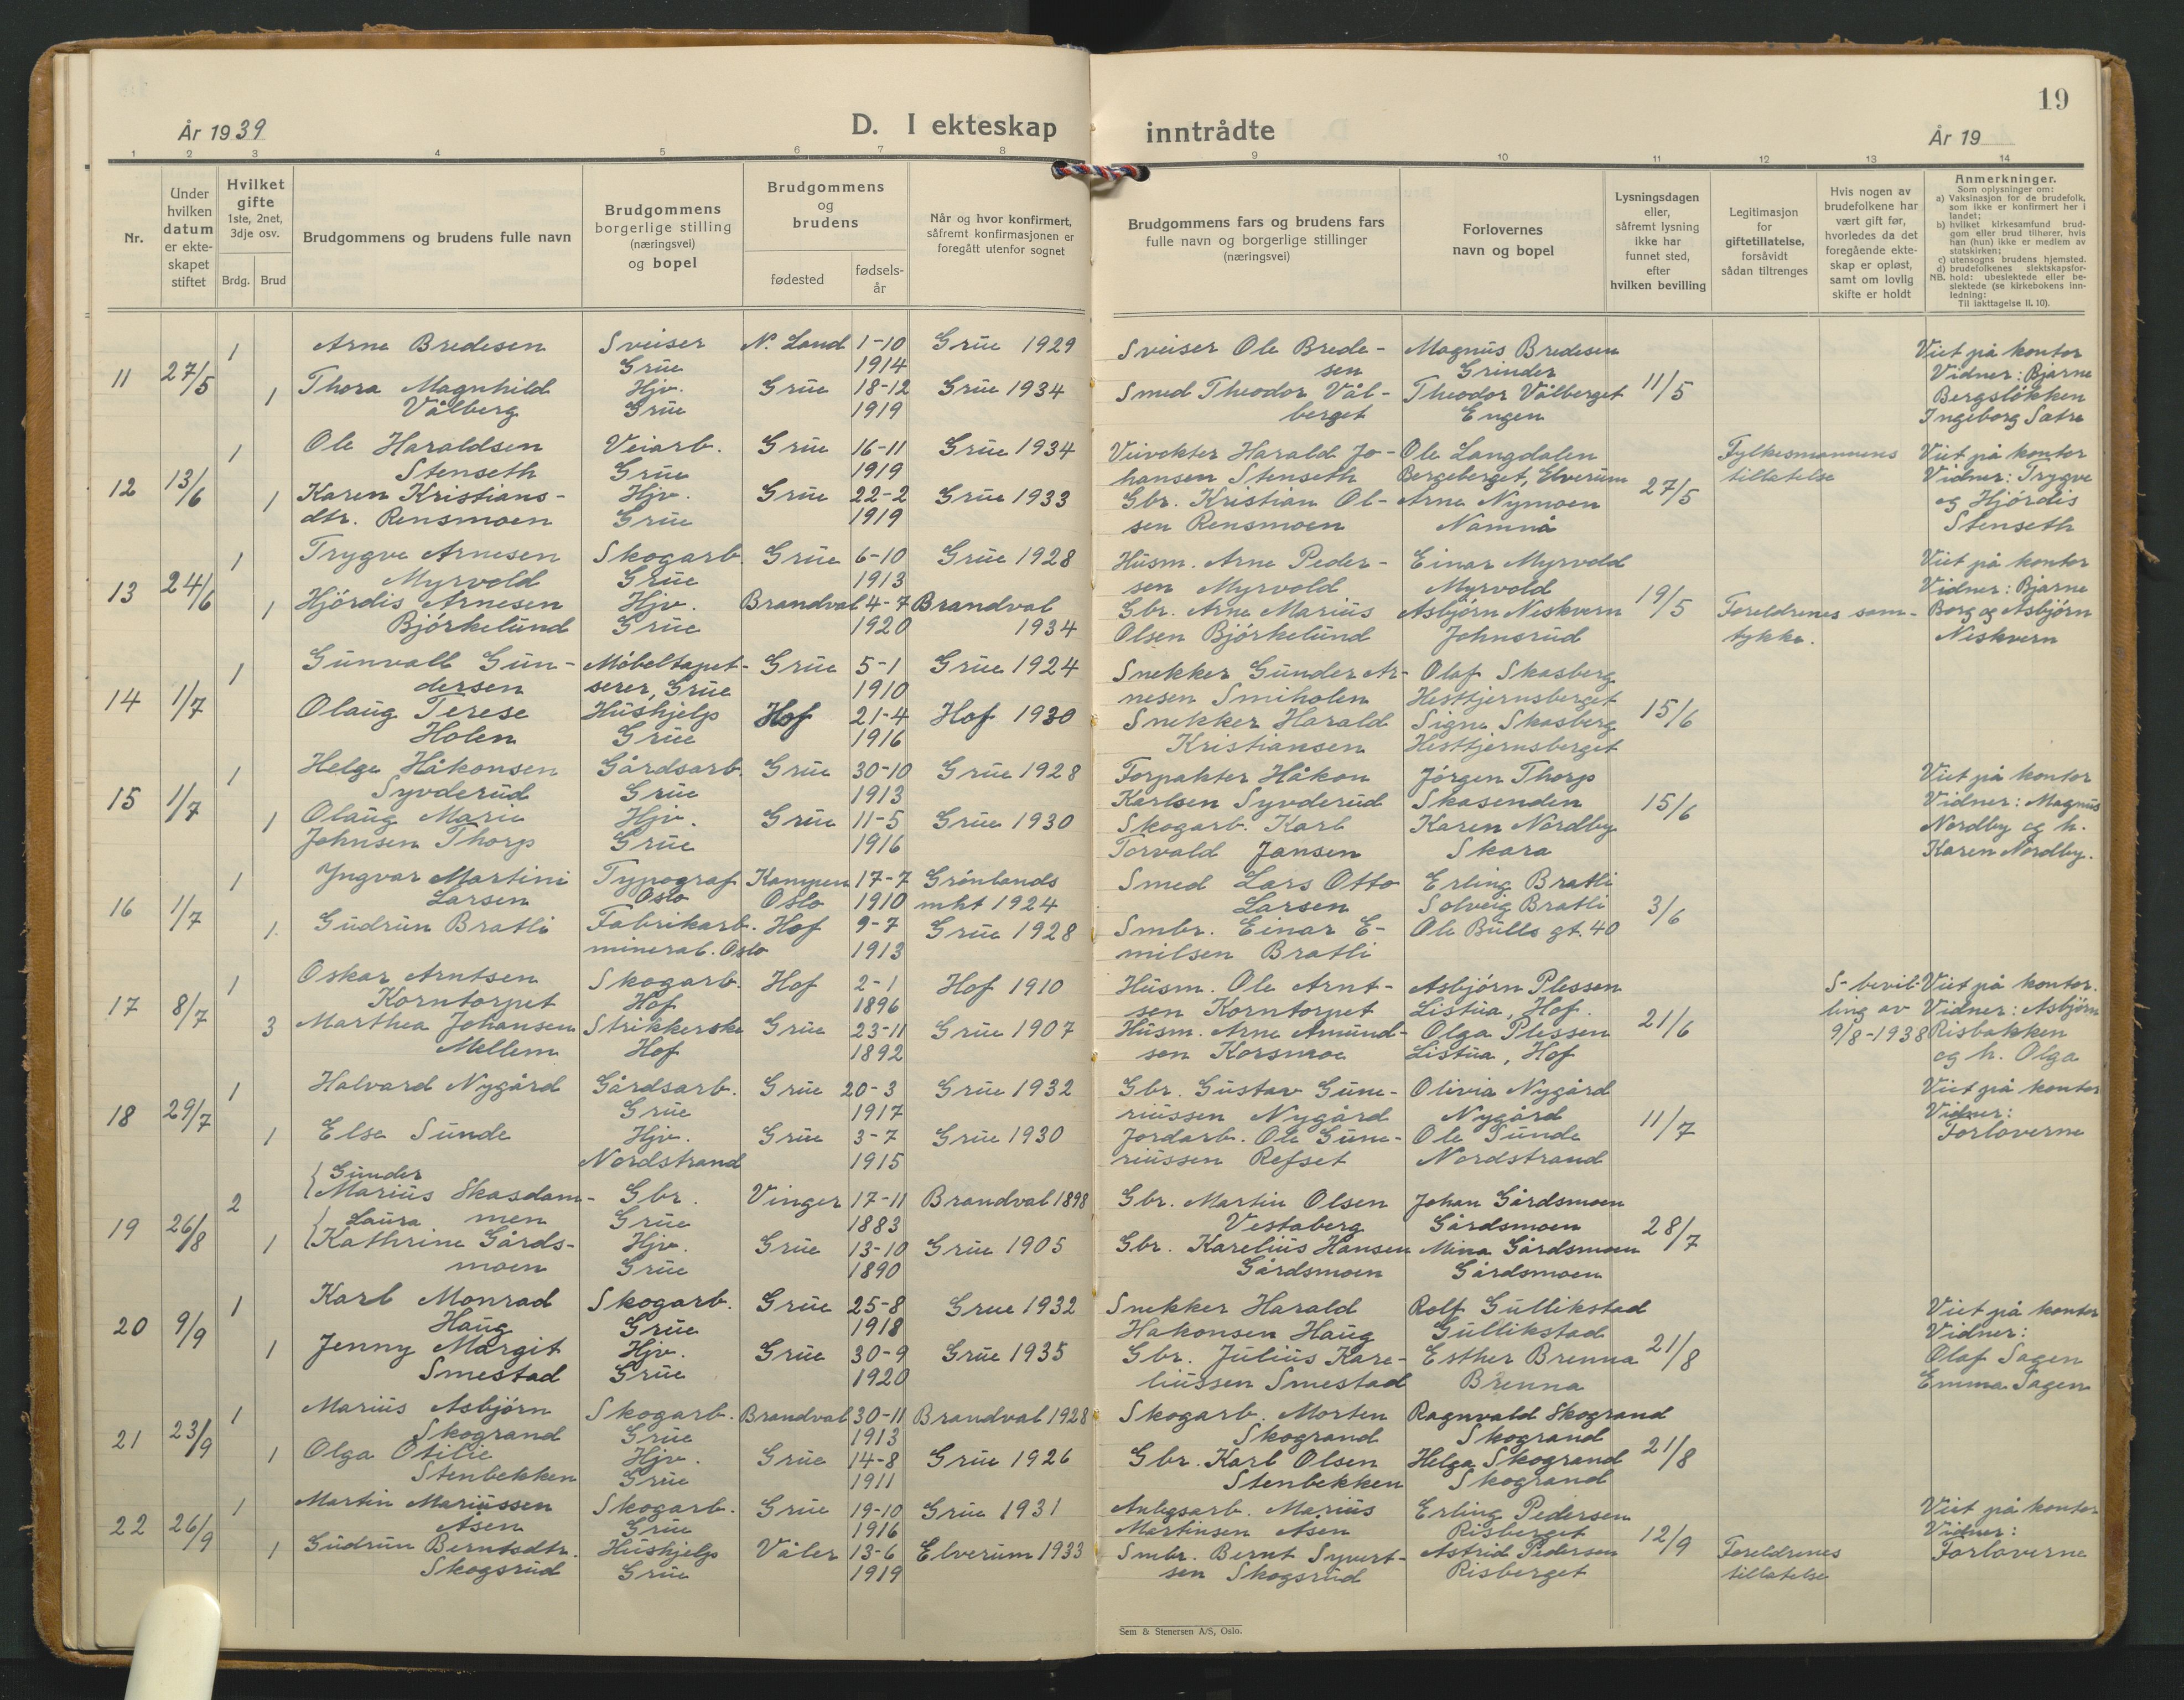 19
År 1939
D. I ekteskap inntrådte
År 19
1 2 3 4 5 6 7 8 9 10 11 12 13 14
Nr.
Under hvilken datum er ekteskapet stiftet
Hvilket gifte 1ste, 2net, 3dje osv.
Brdg. Brud
Brudgommens og brudens fulle navn
Brudgommens borgerlige stilling (næringsvei) og bopel
Brudgommens og brudens
fødested
fødselsår
Når og hvor konfirmert, såfremt konfirmasjonen er foregått utenfor sognet
Brudgommens fars og brudens fars fulle navn og borgerlige stillinger (næringsvei)
Forlovernes navn og bopel
Lysningsdagen eller, såfremt lysning ikke har funnet sted, efter hvilken bevilling
Legitimasjon for giftetillatelse, forsåvidt sådan tiltrenges
Hvis nogen av brudefolkene har vært gift før, hvorledes da det foregående ekteskap er opløst, samt om lovlig skifte er holdt
Anmerkninger.
Som oplysninger om:
a) Vaksinasjon for de brudefolk, som ikke er konfirmert her i landet;
b) hvilket kirkesamfund brudgom eller brud tilhører, hvis han (hun) ikke er medlem av statskirken;
c) utensogns brudens hjemsted.
d) brudefolkenes slektskapsforhold: ubeslektede eller beslektede (se kirkebokens innledning:
NB.
Til iakttagelse II. 10).
11 27/5 1 Arne Bredesen Sveiser Grue N. Land 1-10 1914 Grue 1929 Sveiser Ole Bredesen Magnus Bredesen Grinder 11/5 Viet på kontor
1 Thora Magnhild Vålberg Hjv. Grue Grue 18-12 1919 Grue 1934 Smed Theodor Vålberget Theodor Vålberget Engen Vidner: Bjarne Bergsløkken Ingeborg Sætre
12 13/6 1 Ole Haraldsen Stenseth Veiarb. Grue Grue 16-11 1919 Grue 1934 Veivokter Harald Johansen Stenseth Ole Langdalen Bergeberget, Elverum 27/5 Fylkesmannens tillatelse Viet på kontor
1 Karen Kristiansdtr. Rensmoen Hjv. Grue Grue 22-2 1919 Grue 1933 Gbr. Kristian Olsen Rensmoen Arne Nymoen Namnå Vidner: Trygve og Hjórdis Stenseth
13 24/6 1 Trygve Arnesen Myrvold Skogarb. Grue Grue 6-10 1913 Grue 1928 Husm. Arne Pedersen Myrvold Einar Myrvold Myrvold 19/5 Viet på kontor
1 Hjórdis Arnesen Bjórkelund Hjv. Grue Brandval 4-7 1920 Brandval 1934 Gbr. Arne Marius Olsen Bjórkelund Asbjørn Niskvern Johnsrud Foreldrenes samtykke. Vidner: Bjarne Borg og Asbjørn Niskvern
14 1/7 1 Gunvall Gundersen Møbeltapetserer, Grue Grue 5-1 1910 Grue 1924 Snekker Gunder Arnesen Smiholen Olaf Skasberg Hesttjernsberget 15/6
Olaug Terese Holen Hushjelp Grue Hof 21-4 1916 Hof 1930 Snekker Harald Kristiansen Signe Skasberg Hesttjernsberget
15 1/7 1 Helge Håkonsen Syvderud Gårdsarb. Grue Grue 30-10 1913 Grue 1928 Forpakter Håkon Karlsen Syvderud Jørgen Thorp Skasenden 15/6 Viet på kontor
1 Olaug Marie Johnsen Thorp Hjv. Grue Grue 11-5 1916 Grue 1930 Skogarb. Karl Torvald Jansen Karen Nordby Skara Vidner: Magnus Nordby og h. Karen Nordby.
16 1/7 1 Yngvar Martini Larsen Typograf Oslo Kampen Oslo 17-7 1910 Grønlands mht 1924 Smed Lars Otto Larsen Erling Bratli Solveig Bratli 3/6
1. Gudrun Bratli Fabrikarb. mineral. Oslo Hof 9-7 1913 Grue 1928 Smbr. Einar Emilsen Bratli Ole Bulls gt. 40
17 8/7 1 Oskar Arntsen Korntorpet Skogarb. Hof Hof 2-1 1896 Hof 1910 Husm. Ole Arntsen Korntorpet Asbjørn Plessen Listua, Hof. 21/6 S-bevilling av 9/8-1938 Viet på kontor.
3 Marthea Johansen Mellem Strikkerske Hof Grue 23-11 1892 Grue 1907 Husm. Arne Amundsen Korsmoe Olga Plessen Listua, Hof Vidner: Asbjørn Risbakken og h. Olga
18 29/7 1 Halvard Nygård Gårdsarb. Grue Grue 20-3 1917 Grue 1932 Gbr. Gustav Guneriussen Nygård Olivia Nygård Nygård 11/7 Viet på kontor
1 Else Sunde Hjv. Nordstrand Grue 3-7 1915 Grue 1930 Jordarb. Ole Guneriussen Refset Ole Sunde Nordstrand Vidner: Forloverne
19 26/8 2 Gunder Marius Skasdammen Gbr. Grue Vinger 17-11 1883 Brandval 1898 Gbr. Martin Olsen Vestaberg Johan Gårdsmoen Gårdsmoen 28/7
1 Laura Kathrine Gårdsmoen Hjv. Grue Grue 13-10 1890 Grue 1905 Gbr. Karelius Hansen Gårdsmoen Mina Gårdsmoen Gårdsmoen
20 9/9 1 Karl Monrad Haug Skogarb. Grue Grue 25-8 1918 Grue 1932 Snekker Harald Hakonsen Haug Rolf Gullikstad Gullikstad 21/8 Viet på kontor
1 Jenny Margit Smestad Hjv. Grue Grue 30-9 1920 Grue 1935 Gbr. Julius Kareliussen Smestad Esther Brenna Brenna Vidner: Olaf Sagen Emma Sagen
21 23/9 1 Marius Asbjørn Skogrand Skogarb. Grue Brandval 30-11 1913 Brandval 1928 Skogarb. Morten Skogrand Ragnvald Skogrand Skogrand 21/8
1 Olga Otilie Stenbekken Hjv. Grue Grue 14-8 1911 Grue 1926 Gbr. Karl Olsen Stenbekken Helga Skogrand Skogrand
22 26/9 1 Martin Mariussen Åsen Skogarb. Grue Grue 19-10 1916 Grue 1931 Anlegsarb. Marius Martinsen Åsen Erling Pedersen Risberget 12/9 Viet på kontor
1 Gudrun Berntsdtr. Skogsrud Hushjelp Grue Våler 13-6 1919 Elverum 1933 Smbr. Bernt Syvertsen Skogsrud Astrid Pedersen Risberget Foreldrenes tillatelse Vidner: Forloverne
Sem & Stenersen A/S, Oslo.